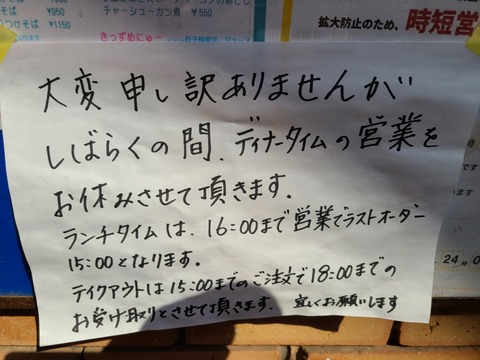 そば ¥950
つけそば ¥1150
チャーシューカン煮 ¥550
きっずめにゅー
拡大防止のため、時短営
大変申し訳ありませんが
しばらくの間、ディナータイムの営業を
お休みさせて頂きます.
ランチタイムは、16:00まで営業でラストオーダー
15:00となります。
テイクアウトは15:00までのご注文で18:00までの
お受け取りとさせて頂きます. 宜しくお願いします